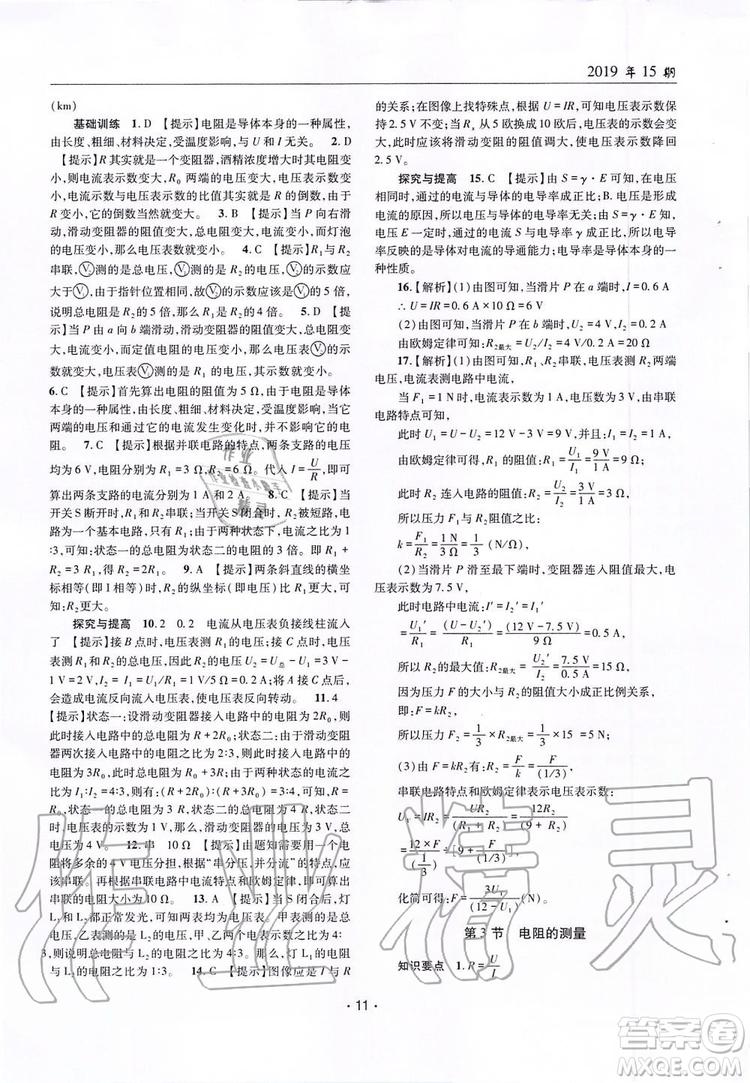 2019 年 15 期
(km)
基础训练 1. D 【提示】电阻是导体本身的一种属性,
由长度、粗细、材料决定,受温度影响,与 U 和 I 无关。 2. D
【提示】R 其实就是一个变阻器,酒精浓度增大时其电阻变
小,则电流表示数变大,R₀ 两端的电压变大,电压表示数变
小,电流示数与电压表示数的比值其实就是 R 的电阻,电阻变
小,它的倒数当然就变大。 3. B 【提示】当 P 向右滑
动,滑动变阻器的阻值变大,总电阻变大,电流变小,而灯泡
的电压变小,那么电压表数就变大。 4. C 【提示】R₁ 与 R₂
串联,Ⓥ测的是总电压,Ⓥ测的是 R₂ 的电压,Ⓥ的示数应
大于Ⓥ,由于指针位置相同,故Ⓥ示数应该是Ⓥ的 5 倍,
说明总电阻是 R₂ 的 5 倍,那么 R₁ 就应该是 R₂ 的 4 倍,由于
是串联,电流相等,所以电压也应该是 4 倍。 5. D 【提
示】当 P 由 a 向 b 端滑动,滑动变阻器的阻值变大,总电阻变
大,电流变小,而定值电阻的电压变小,那么Ⓥ的示数就变
小,电流表示数就变小,Ⓥ测的是 R₁ 的电压,那么Ⓥ的示
数就变大。
6. C 【提示】首先算出电阻的阻值为 5 Ω,由于电阻是导体
本身的一种属性,由长度、粗细、材料决定,受温度影响,当它
两端的电压和通过它的电流发生变化时,并不会影响它的电
阻。 7. C 【提示】根据并联电路的特点,两条支路的电压
均为 6 V,电阻分别为 R₁ =3 Ω、R₂ =6 Ω。代入 I=U/R,即可
算出两条支路的电流分别为 1 A 和 2 A。 8. C 【提示】当
开关 S 断开时,R₁、R₂ 串联,当开关 S 闭合时,R₂ 被短路,电
路为一个基本电路,对于两种状态下,总电流之比为 1∶
3,那么状态一的总电阻为状态二的电阻的 3 倍。即 R₁ +
R₂ =3R₁。即 R₂ =2R₁ 9. A 【提示】两条斜直线的横坐
标相等(即 I 相等)时,R₁ 的纵坐标(即电压)更大,可见 R₁
电阻更大。
探究与提高 10. 2 0. 2 电流从电压表负接线柱流入
了 【提示】接 B 点时,电压表测 R₁ 两端的电压,接 C 点时,
电压表测 R₁、R₂ 的总电压,当 U总 =3 V,U₁ =1 V 时,可知
U₂ =2 V,I = I₂ = I₁ = U₁/R₁ =1 V/5 Ω =0. 2 A,当接到 A 点时,
会造成电流反向流入电压表,使电压表反向转动。 11. 4
【提示】状态一:设滑动变阻器接入电路中的电阻为 2R₀,则
此时接入电路中的总电阻为 R + 2R₀;状态二:由于滑动变阻
器两次接入电路中的电阻之比为 2∶3,则此时接入电路中的
电阻为 3R₀,此时接入电路的总电阻为 R + 3R₀,由于两次电
流之比为 I₁∶I₂ =4∶3,有:(R + 2R₀)∶(R + 3R₀) =3∶4,故
R = R₀。则第一次电压表的示数占电源电压的 2/3,为 8 V
时,电源电压为 12 V,当滑动变阻器接入电阻为 3R₀ 时,总
电阻为 4R₀,电压表的示数为 9 V,故滑动变阻器的电压为 3 V,
应填 4 V。 12. 串 10 Ω 【提示】由于题知需要用一个
电阻将多余的 4V 电压分担,根据“串分压,并分流”的特点,
应该串联。再根据串联电路中电流特点和欧姆定律可得应
串联的电阻为 10 Ω。 13. A 【提示】当 S 闭合后,灯
L₁、L₂ 并联,甲表测 L₁、L₂ 的总电流,乙表测通过 L₂ 的电流。
而 L₁、L₂ 的电压相等,由于甲、乙两个电流表示数之比为 4∶
3,则通过灯 L₁ 与 L₂ 的电流之比为 1∶3,由于电压相等,则电
阻 L₁ 与 L₂ 之比为 3∶1。 14. C 【提示】图像应是 I 与 R
的关系;在图像上找特殊点,根据 U = IR,可知电压表示数保持
2. 5 V 不变;当 Rₓ 从 5 欧换成 10 欧时,电压表的示数会变大,
此时应该将滑动变阻的阻值调大,才能使电压表示数降回
2. 5 V。
探究与提高 15. C 【提示】由 S = γ · E 可知,在电压
相同时,通过的电流与导体的电导率成正比;B. 电压是形成
电流的原因,所以电压与电流无关;C. 由 S = γ · E 可知,当
电压 E 一定时,通过的电流 S 与电导率 γ 成正比,所以电导
率反映的是导体对电流的导通能力;电导率是导体本身的一
种性质。
16. 【解析】(1)由图可知,当滑片 P 在 a 端时,I =0. 6 A
∴ U = IR =0. 6 A ×10 Ω =6 V
(2)由图可知,当滑片 P 在 b 端时,U₂ =4 V,I₂ =0. 2 A
由欧姆定律可知:R₂最大 = U₂/I₂ =4 V/0. 2 A =20 Ω
17. 【解析】(1)由图可知,R₁、R₂ 串联,电压表测 R₂ 两端
电压,电流表测电路中电流,
当 F₁ =1 N 时,电流表示数为 1 A,电压表示数为 3 V,由串联
电路特点可知,
此时 U₁ = U – U₂ =12 V – 3 V =9 V,并且:I = I₁ =1 A,
由欧姆定律可得,R₁ 的阻值:R₁ = U₁/I = 9 V/1 A =9 Ω;
此时 R₂ 连入电路的阻值:R₂ = U₂/I = 3 V/1 A =3 Ω
所以压力 F₁ 与 R₂ 阻值比:
k = F₁/R₂ = 1 N/3 Ω = 1/3 (N/Ω);
(2)当滑片 P 滑至最下端时,变阻器连入阻值最大,电
压表示数为 7. 5 V,
此时电路中电流:I′ = I₁′
= U₁′/R₁ = (U – U₂′)/R₁ = (12 V – 7. 5 V)/9 Ω =0. 5 A,
所以 R₂ 的最大值:R₂最大 = U₂′/I′ = 7. 5 V/0. 5 A =15 Ω
因为压力 F 的大小与 R₂ 阻值大小成正比例关系,
即:F = kR₂,所以 F最大 = 1/3 × R₂最大 = 1/3 ×15 =5 N;
(3)由 F = kR₂ 可得:R₂ = F/k = F/(1/3),
串联电路特点和欧姆定律表示电压表示数:
U₁ = IR₂ = UR₂/(R₁ + R₂) = 12R₂/(9 + R₂)
= (12 × F/(1/3))/(9 + F/(1/3))
化简可得:F = 3U₁/(12 – U₁) (N)。
第 3 节 电阻的测量
知识要点 1. R = U/I
· 11 ·
作业精灵
作业
作业检查小助手
精灵
答案圈
MXQE.COM